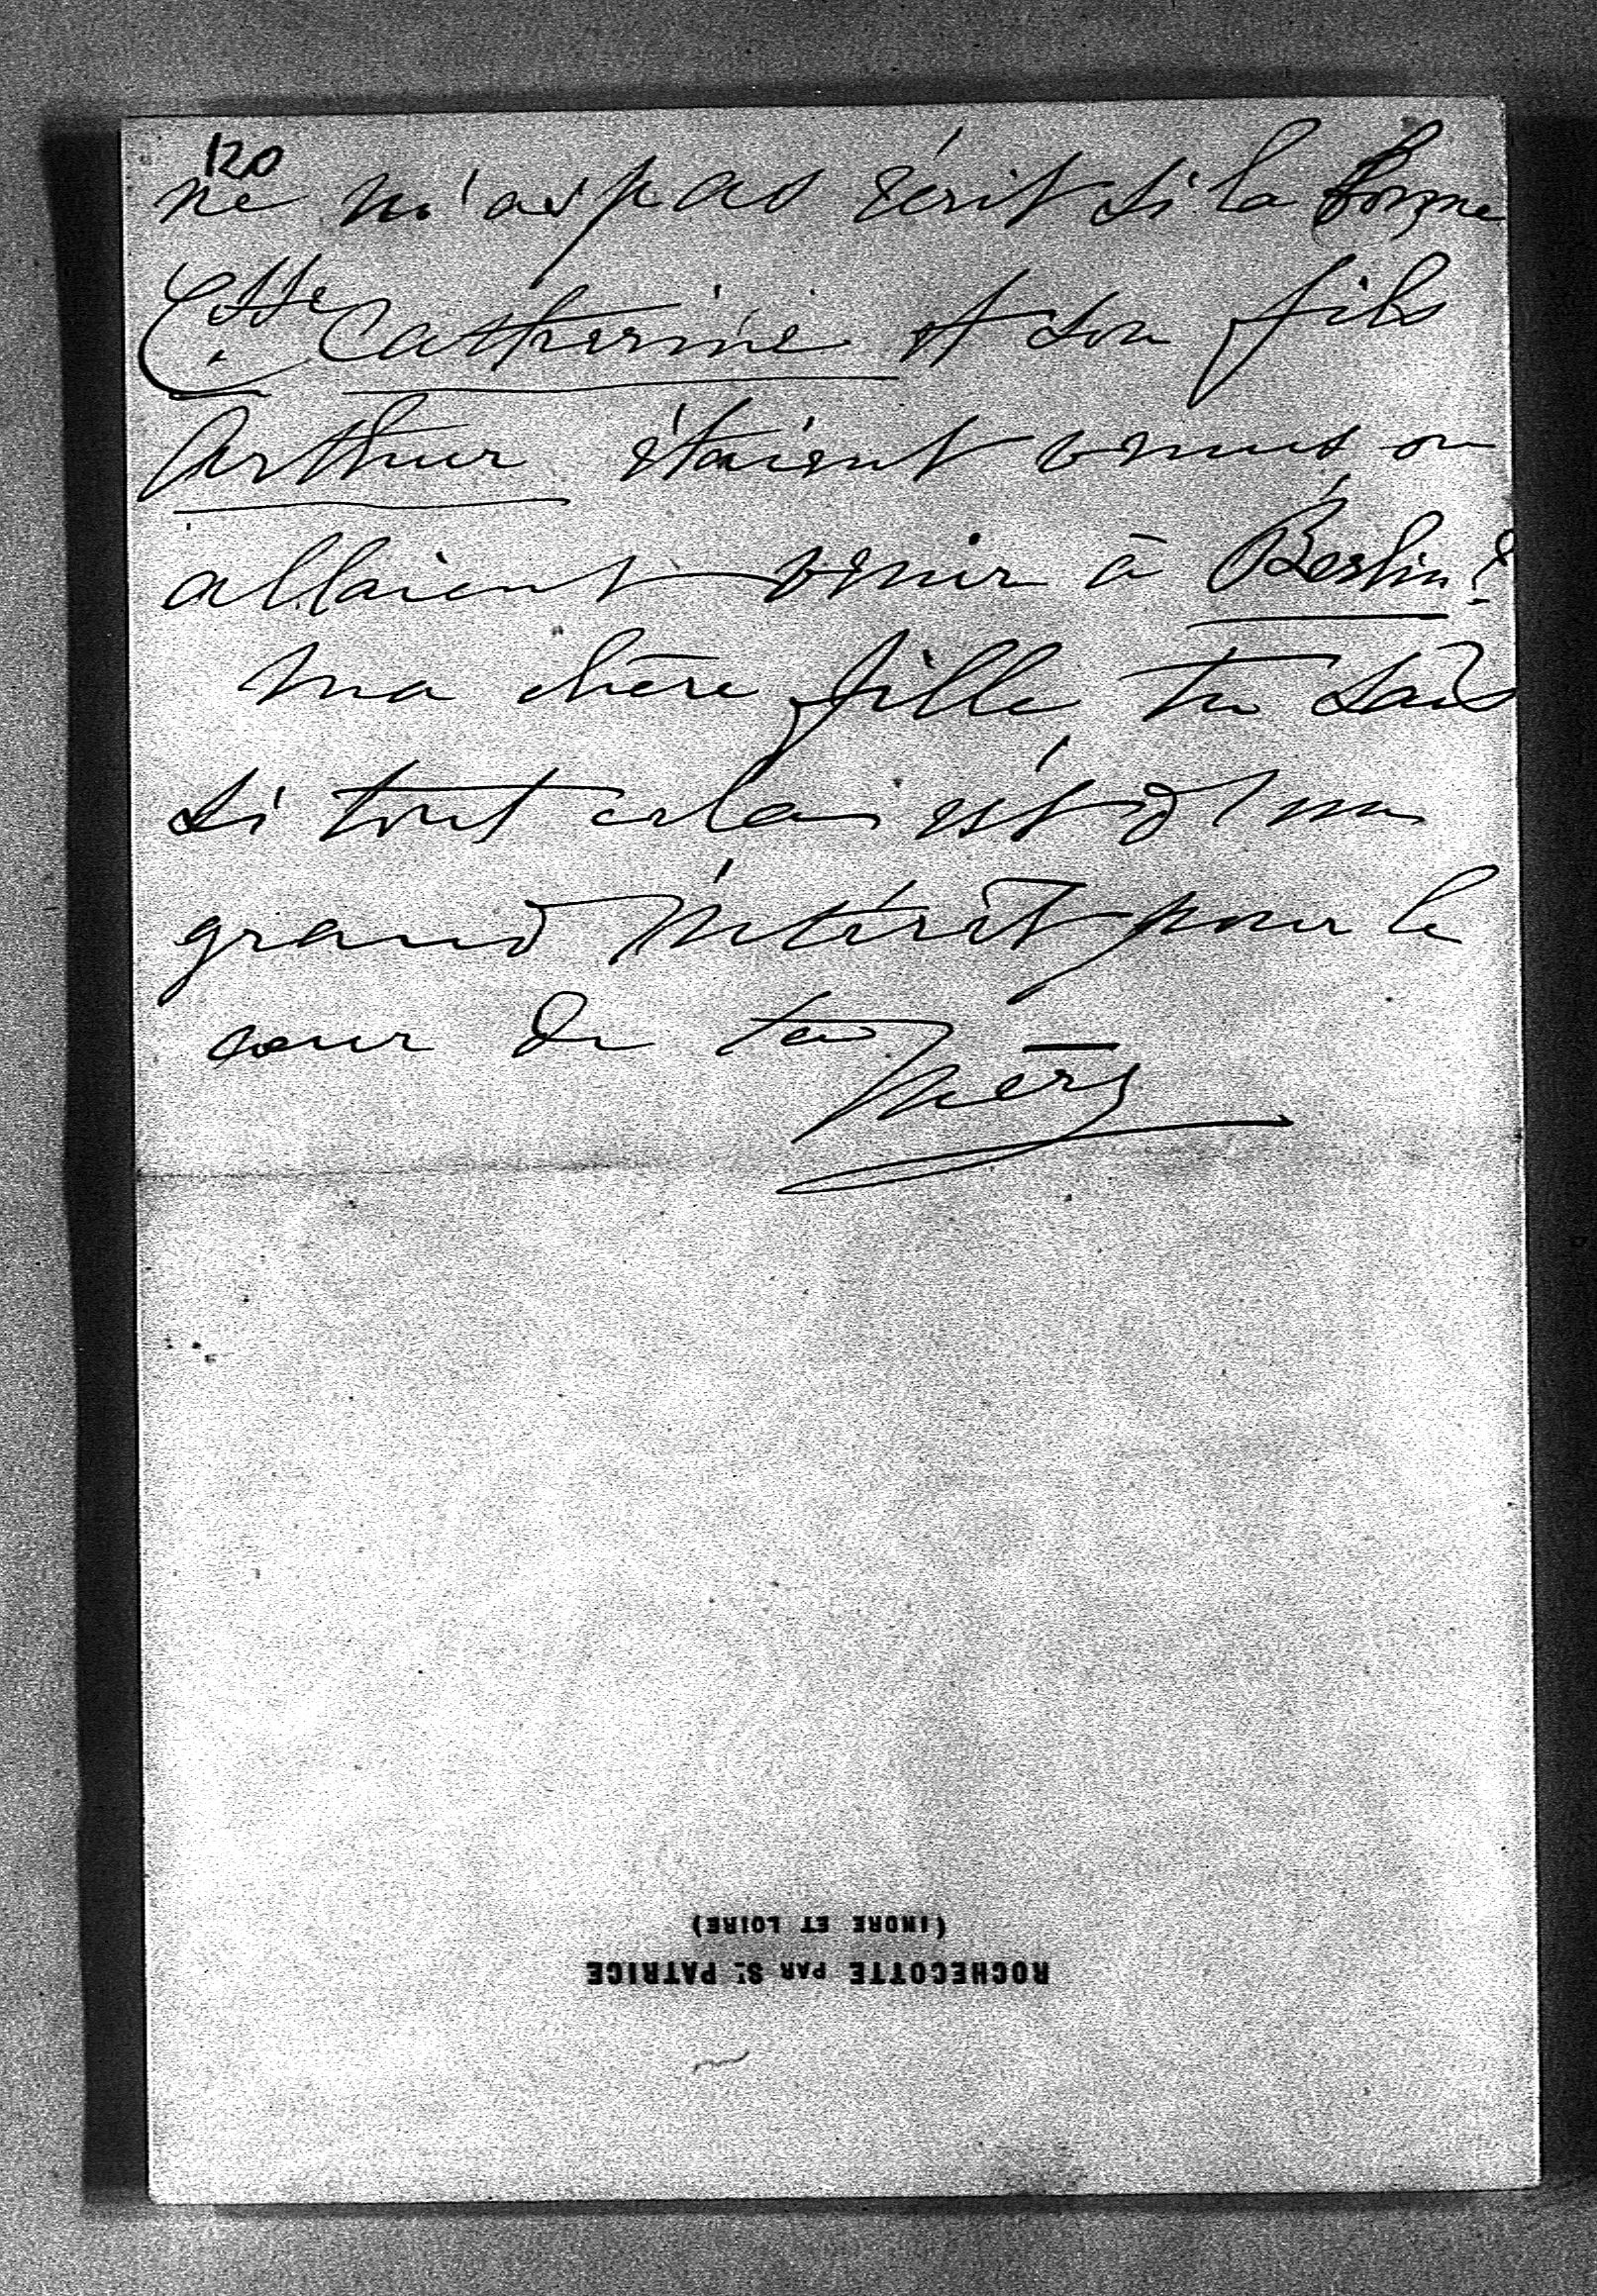 120
ne m'as pas écrit si la bonne
Ctsse Catherine et son fils
Arthur étaient venus ou
allaient venir à Berlin?
Ma chère fille tu sais
si tout cela est d'un
grand intérêt pour le
cœur de ta
mère
ROCHECOTTE PAR St. PATRICE
(INDRE ET LOIRE)